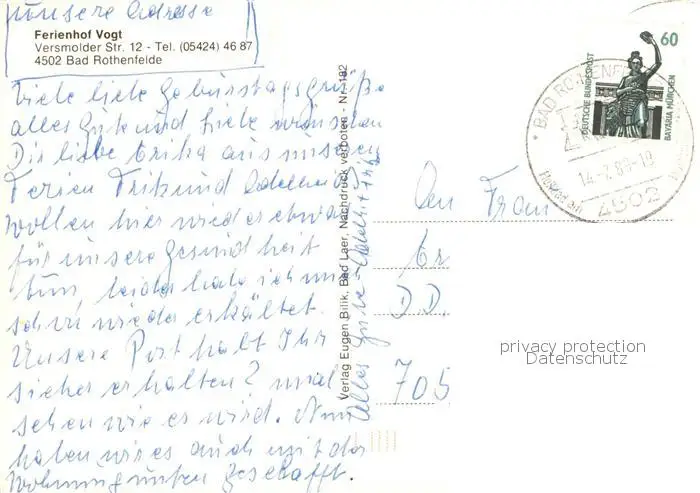 unsere Adresse
Ferienhof Vogt
Versmolder Str. 12 - Tel. (05424) 46 87
4502 Bad Rothenfelde
Viele liebe Geburtstagsgrüße
alles Gute und Liebe wünschen
Dir liebe Erika aus unseren
Ferien Fritz und Adelheid
wollen hier wieder etwas
für unsere Gesundheit
tun, leider habe ich mich
schon wieder erkältet.
Unsere Post habt Ihr
sicher erhalten? mal
sehen wie es wird. Nun
haben wir es auch mit der
Wohnung unten geschafft.
Alles Gute Adelheid + Fritz
Verlag Eugen Bilik, Bad Laer, Nachdruck verboten - Nr. 182
An Frau
Er
D.D.
705
60
DEUTSCHE BUNDESPOST
BAVARIA MÜNCHEN
BAD ROTHENF
14-7.89-10
4502
privacy protection
Datenschutz